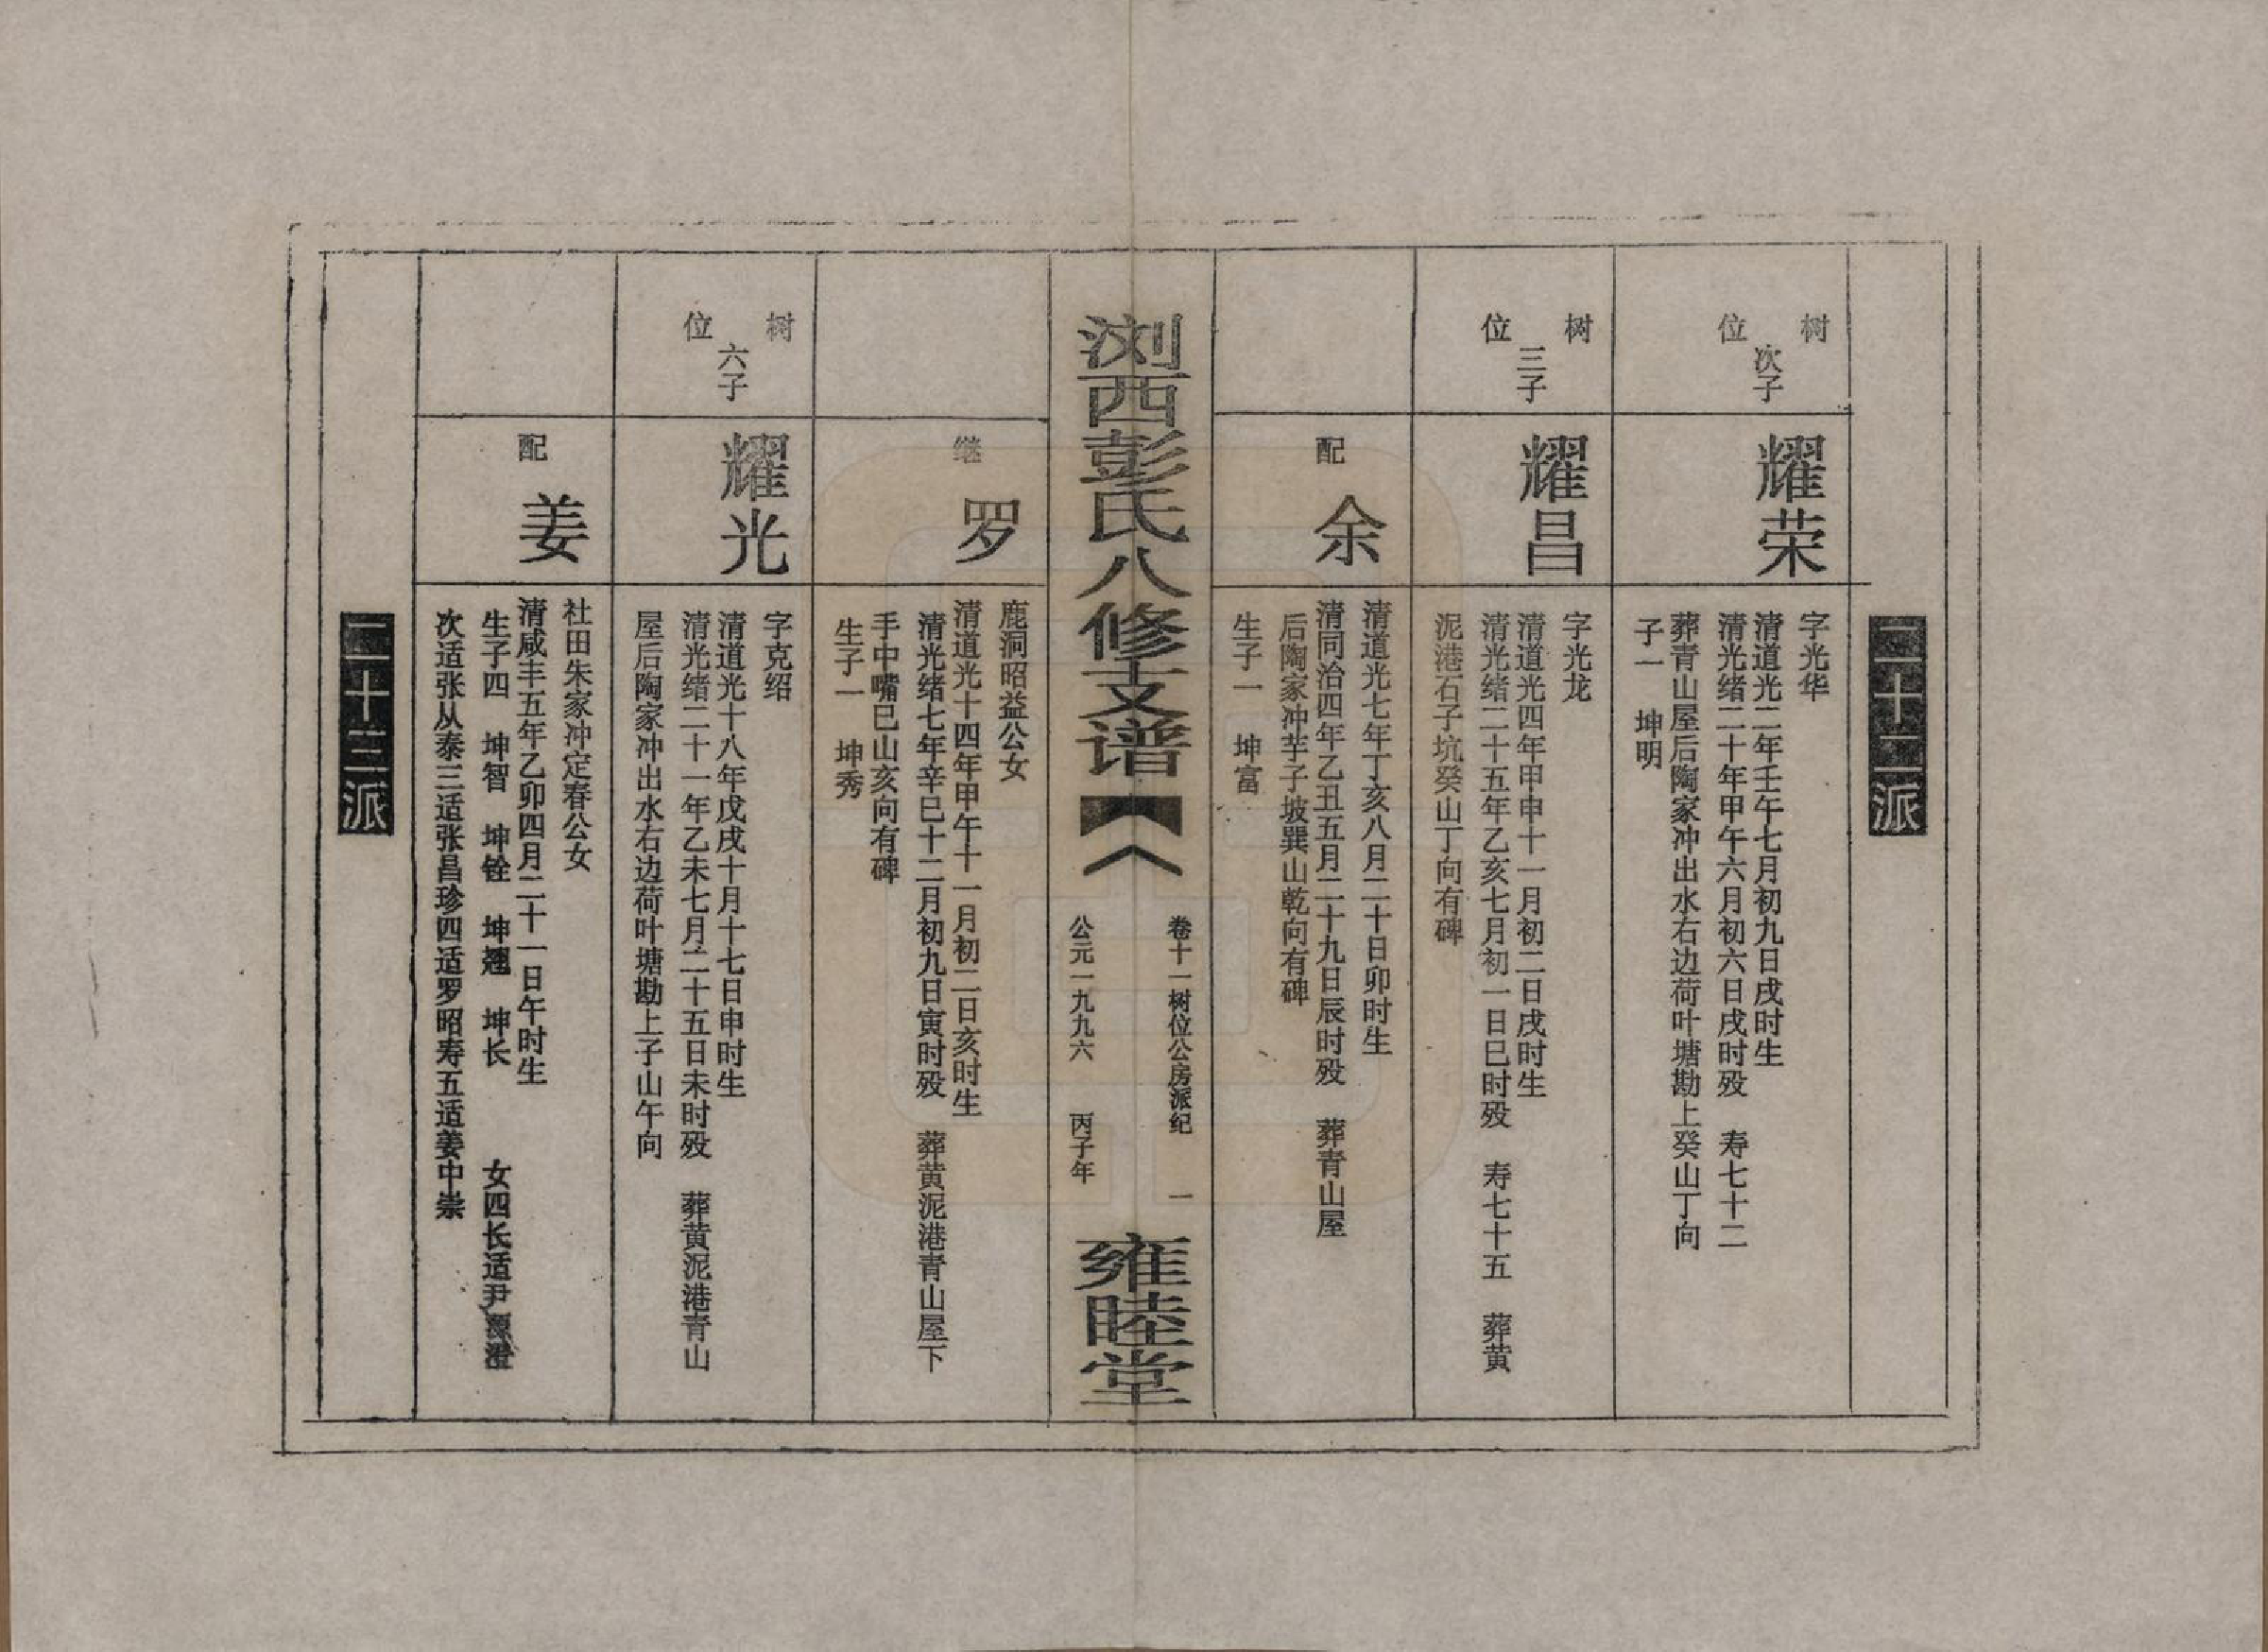 二十二派
树位
次子
耀荣
字光华
清道光二年壬午七月初九日戌时生
清光绪二十年甲午六月初六日戌时殁 寿七十二
葬青山屋后陶家冲出水右边荷叶塘勘上癸山丁向
子一 坤明
树位
三子
耀昌
字光龙
清道光四年甲申十一月初二日戌时生
清光绪二十五年乙亥七月初一日巳时殁 寿七十五 葬黄
泥港石子坑癸山丁向有碑
配
余
清道光七年丁亥八月二十日卯时生
清同治四年乙丑五月二十九日辰时殁 葬青山屋
后陶家冲芋子坡巽山乾向有碑
生子一 坤富
浏西彭氏八修支谱
卷十一树位公房派纪 一
公元一九九六 丙子年
雍睦堂
继
罗
鹿洞昭益公女
清道光十四年甲午十一月初二日亥时生
清光绪七年辛巳十二月初九日寅时殁 葬黄泥港青山屋下
手中嘴巳山亥向有碑
生子一 坤秀
树位
六子
耀光
字克绍
清道光十八年戊戌十月十七日申时生
清光绪二十一年乙未七月二十五日未时殁 葬黄泥港青山
屋后陶家冲出水右边荷叶塘勘上子山午向
配
姜
社田朱家冲定春公女
清咸丰五年乙卯四月二十一日午时生
生子四 坤智 坤铨 坤翘 坤长 女四长适尹
次适张从泰三适张昌珍四适罗昭寿五适姜中崇
二十三派